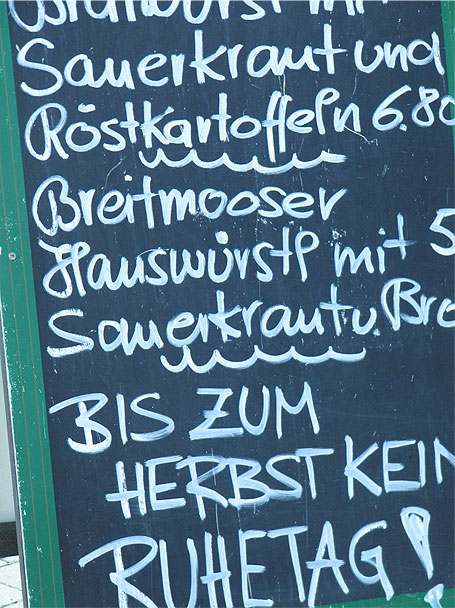 Bratwurst mit
Sauerkraut und
Röstkartoffeln 6.80
Breitmooser
Hauswürstl mit 5
Sauerkraut u. Bro
BIS ZUM
HERBST KEIN
RUHETAG!